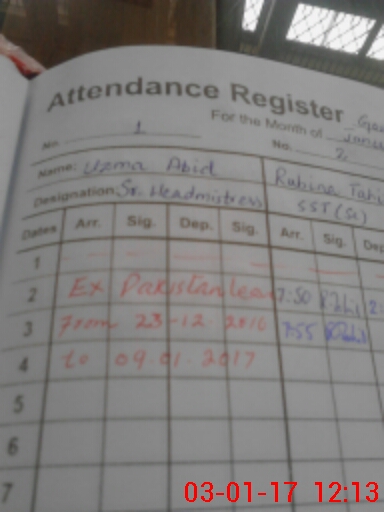 Attendance Register
For the Month of
No. 1 No. 2
Name: Uzma Abid Rubina
Designation: Sr. Headmistress SST (Sc)
Dates Arr. Sig. Dep. Sig. Arr. Sig.
1
2 Ex Pakistan leave 7:50
3 From 23-12-2016 7:55
4 to 09.01.2017
5
6
7
03-01-17 12:13